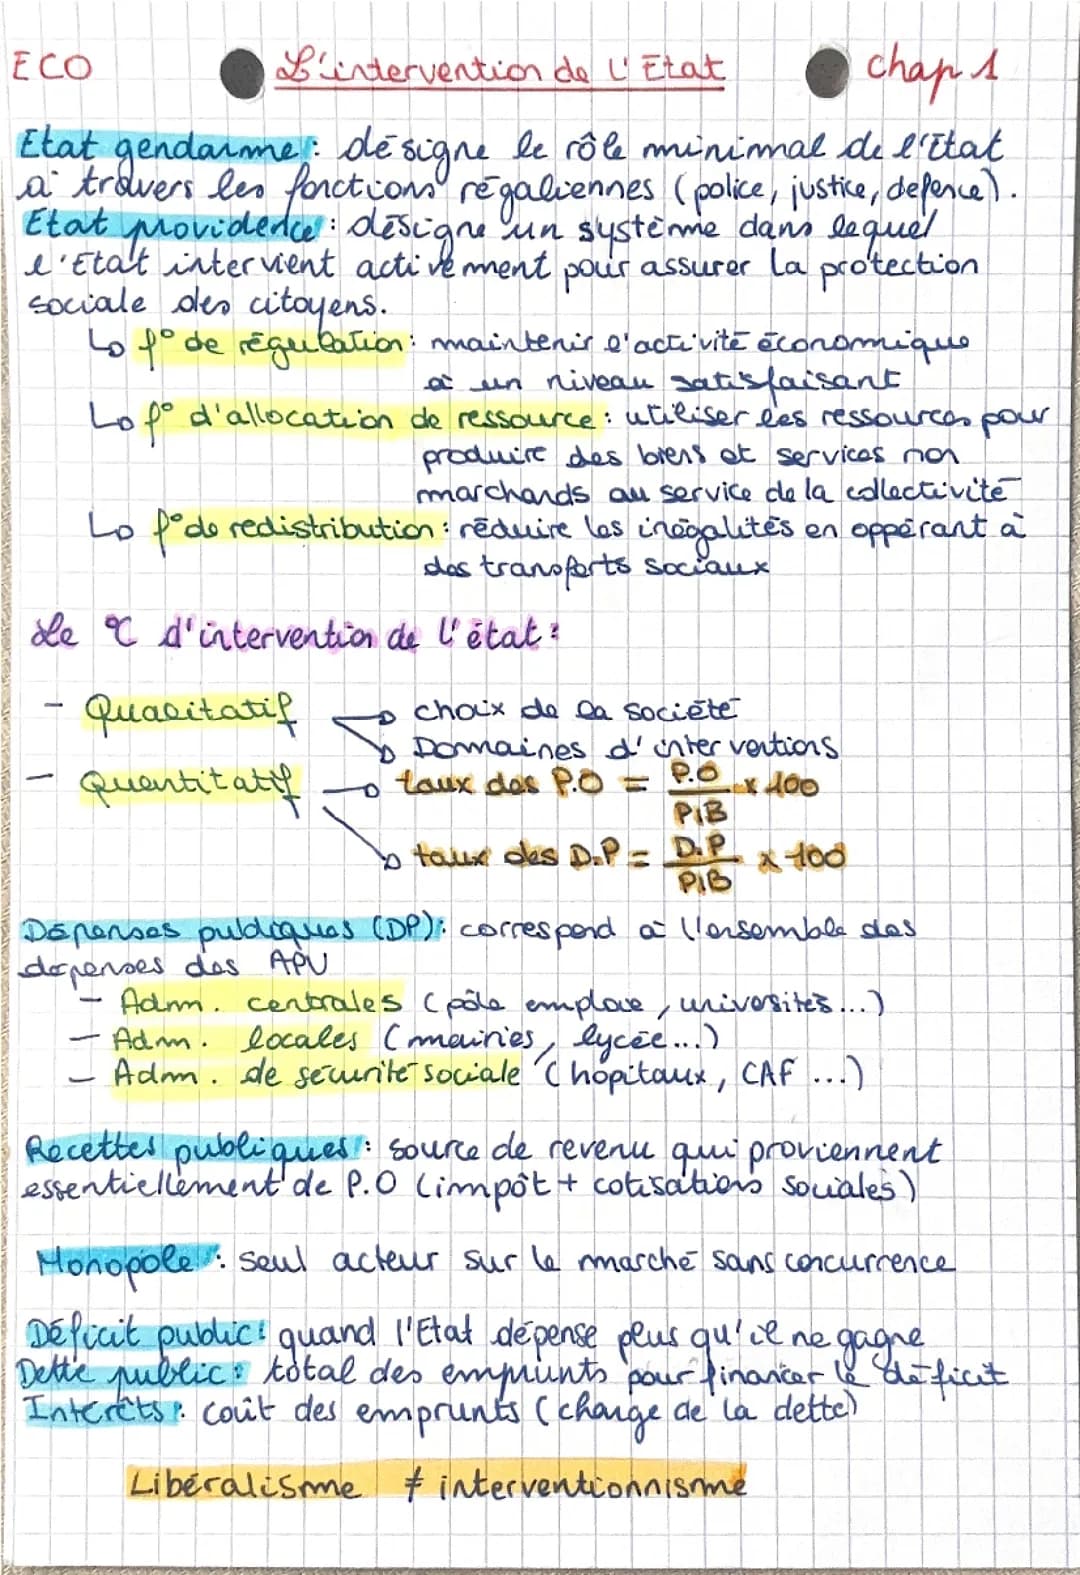 ECO L'intervention de L'Etat chap 1
Etat gendarme : désigne le rôle minimal de l'Etat
à travers les fonctions régaliennes (police, justice, defence).
Etat providence : désigne un système dans lequel
l'Etat intervient activement pour assurer la protection
sociale des citoyens.
↳ f° de régulation : maintenir l'activité économique
à un niveau satisfaisant
↳ f° d'allocation de ressource : utiliser les ressources pour
produire des biens et services non
marchands au service de la collectivité
↳ f° de redistribution : réduire les inégalités en oppérant à
des transferts sociaux
Le °C d'intervention de l'état :
- Qualitatif → choix de la société
→ Domaines d'interventions
- Quantitatif → taux des P.O = P.O / PIB x 100
→ taux des D.P = D.P / PIB x 100
Dépenses publiques (DP) : correspond à l'ensemble des
dépenses des APU
- Adm. centrales (pôle emploie, univosités...)
- Adm. locales (mairies, lycée...)
- Adm. de sécurité sociale (hôpitaux, CAF ...)
Recettes publiques : source de revenu qui proviennent
essentiellement de P.O (impôt + cotisations sociales)
Monopole : seul acteur sur le marché sans concurrence
Déficit public : quand l'Etat dépense plus qu'il ne gagne
Dette public : total des emprunts pour financer le déficit
Intérêts : coût des emprunts (charge de la dette)
Libéralisme ≠ interventionnisme